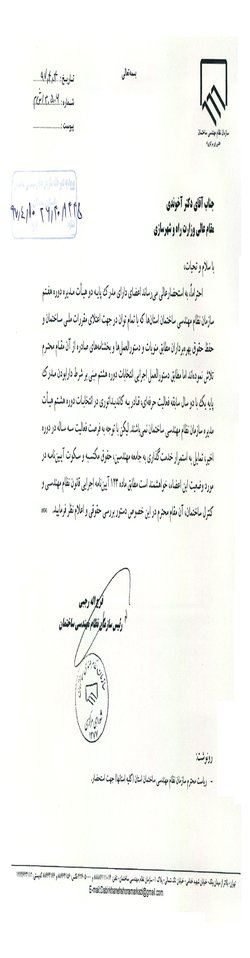 بسمه‌تعالی
سازمان نظام مهندسی ساختمان
تاریخ:
شماره:
پیوست:
جناب آقای دکتر آخوندی
مقام عالی وزارت راه و شهرسازی
با سلام و تحیات،
احتراماً، به استحضارعالی می‌رساند اعضای دارای مدرک پایه دو هیأت مدیره دوره هفتم
سازمان نظام مهندسی ساختمان استان‌ها که با تمام توان در جهت اعتلای مقررات ملی ساختمان و
حفظ حقوق بهره‌برداران مطابق منویات و دستورالعمل‌ها و بخشنامه‌های صادره از آن مقام محترم
تلاش نموده‌اند، اما مطابق دستورالعمل اجرایی انتخابات دوره هشتم مبنی بر شرط دارابودن مدرک
پایه یک با دو سال سابقه فعالیت حرفه‌ای، قادر به کاندیداتوری در انتخابات دوره هشتم هیأت
مدیره سازمان نظام مهندسی ساختمان نمی‌باشند. لیکن با توجه به فرصت فعالیت سه ساله در دوره
اخیر، تمایل به استمرار خدمت‌گذاری به جامعه مهندسین، حقوق مکتسبه و سکوت آیین‌نامه در
مورد وضعیت این اعضاء، خواهشمند است مطابق ماده ۱۲۳ آیین‌نامه اجرایی قانون نظام مهندسی و
کنترل ساختمان، آن مقام محترم در این خصوص دستور بررسی حقوقی و اعلام نظر فرمایید.
فرج‌اله رجبی
رئیس سازمان نظام مهندسی ساختمان
رونوشت:
- ریاست محترم سازمان نظام مهندسی ساختمان استان (کلیه استانها) جهت استحضار.